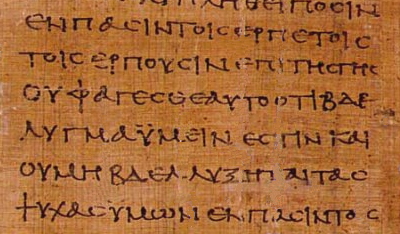 ΠΛΗΘΕΙΠΟϹΙΝ
ΕΝΠΑϹΙΝΤΟΙϹΕΡΠΕΤΟΙϹ
ΤΟΙϹΕΡΠΟΥϹΙΝΕΠΙΤΗϹΓΗϹ
ΟΥΦΑΓΕϹΘΕΑΥΤΟΟΤΙΒΔΕ
ΛΥΓΜΑΫΜΕΙΝΕϹΤΙΝΚΑΙ
ΟΥΜΗΒΔΕΛΥΞΗΤΑΙΤΑϹ
ΨΥΧΑϹΫΜΩΝΕΝΠΑϹΙΝΤΟϹ